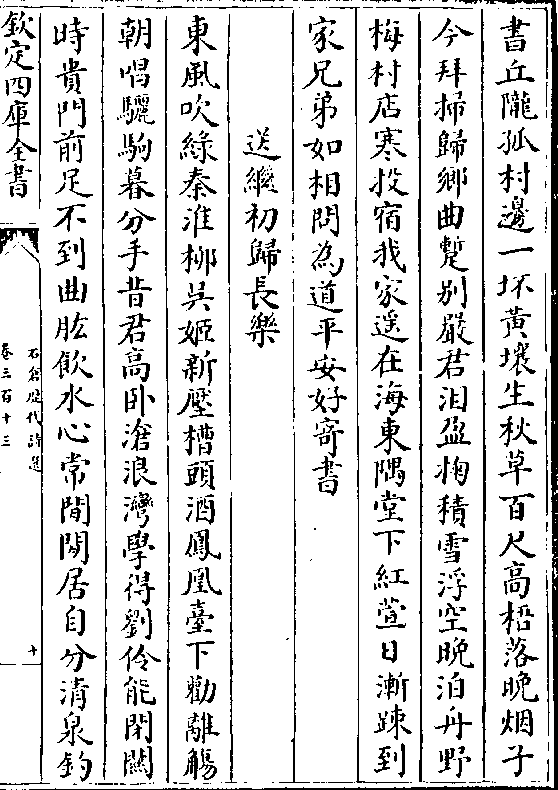 書丘隴孤村邊一坏黃壤生秋草百尺高梧落晚烟子
今拜掃歸鄉曲蹔别嚴君泪盈掬積雪浮空晚泊舟野
梅村店寒投宿我家遥在海東隅堂下紅萱日漸踈到
家兄弟如相問為道平安好寄書
送繼初歸長樂
東風吹綠秦淮柳吳姬新壓槽頭酒鳳凰臺下勸離觴
朝唱驪駒暮分手昔君高卧滄浪灣學得劉伶能閉關
時貴門前足不到曲肱飲水心常閒閒居自分清泉釣
欽定四庫全書
石倉歷代詩選
卷三百十三
十